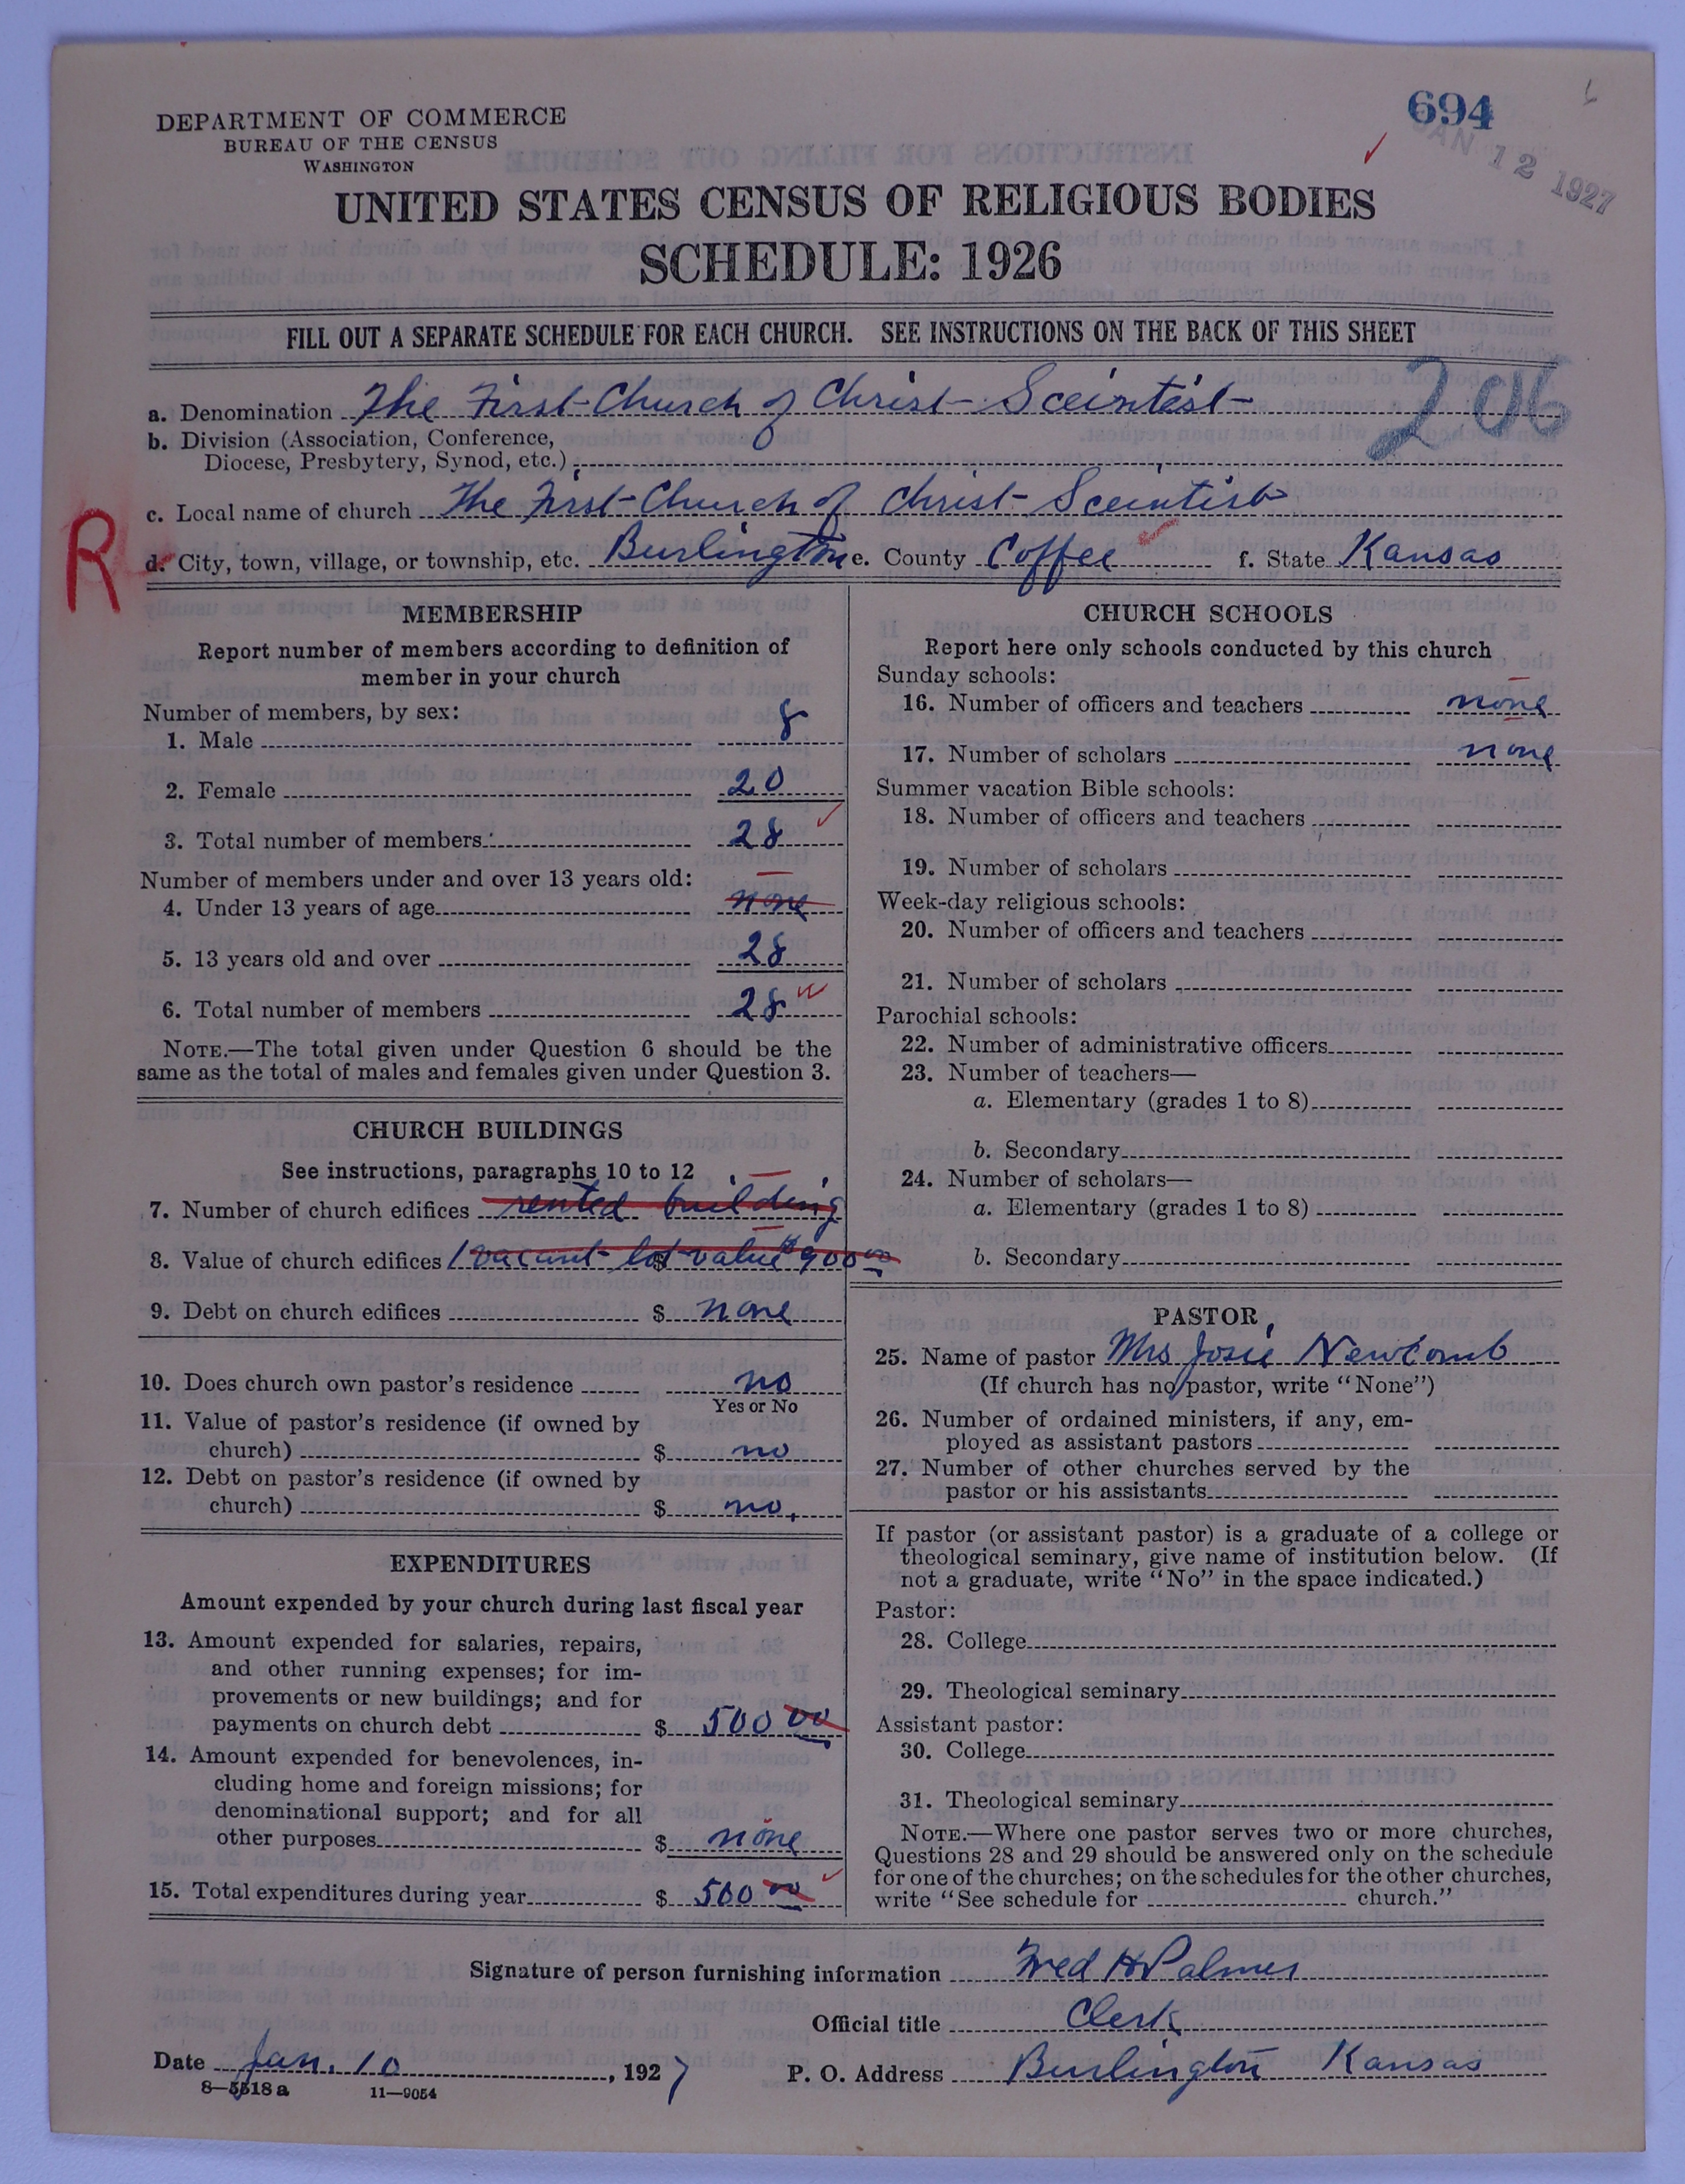 694
JAN 12 1927
DEPARTMENT OF COMMERCE
BUREAU OF THE CENSUS
WASHINGTON
UNITED STATES CENSUS OF RELIGIOUS BODIES
SCHEDULE: 1926
FILL OUT A SEPARATE SCHEDULE FOR EACH CHURCH. SEE INSTRUCTIONS ON THE BACK OF THIS SHEET
206
a. Denomination The First Church of Christ Sceintist
b. Division (Association, Conference,
Diocese, Presbytery, Synod, etc.)
c. Local name of church The First Church of Christ Sceintist
R
d. City, town, village, or township, etc. Burlington e. County Coffee f. State Kansas
MEMBERSHIP
Report number of members according to definition of
member in your church
Number of members, by sex:
1. Male 8
2. Female 20
3. Total number of members 28
Number of members under and over 13 years old:
4. Under 13 years of age none
5. 13 years old and over 28
6. Total number of members 28
NOTE.—The total given under Question 6 should be the
same as the total of males and females given under Question 3.
CHURCH BUILDINGS
See instructions, paragraphs 10 to 12
7. Number of church edifices rented building
8. Value of church edifices 1 vacant lot value $900 00
9. Debt on church edifices $ none
10. Does church own pastor's residence no
Yes or No
11. Value of pastor's residence (if owned by
church) $ no
12. Debt on pastor's residence (if owned by
church) $ no.
EXPENDITURES
Amount expended by your church during last fiscal year
13. Amount expended for salaries, repairs,
and other running expenses; for im-
provements or new buildings; and for
payments on church debt $ 500 00
14. Amount expended for benevolences, in-
cluding home and foreign missions; for
denominational support; and for all
other purposes $ none
15. Total expenditures during year $ 500 00
CHURCH SCHOOLS
Report here only schools conducted by this church
Sunday schools:
16. Number of officers and teachers none
17. Number of scholars none
Summer vacation Bible schools:
18. Number of officers and teachers
19. Number of scholars
Week-day religious schools:
20. Number of officers and teachers
21. Number of scholars
Parochial schools:
22. Number of administrative officers
23. Number of teachers—
a. Elementary (grades 1 to 8)
b. Secondary
24. Number of scholars—
a. Elementary (grades 1 to 8)
b. Secondary
PASTOR
25. Name of pastor Mrs Josie Newcomb
(If church has no pastor, write "None")
26. Number of ordained ministers, if any, em-
ployed as assistant pastors
27. Number of other churches served by the
pastor or his assistants
If pastor (or assistant pastor) is a graduate of a college or
theological seminary, give name of institution below. (If
not a graduate, write "No" in the space indicated.)
Pastor:
28. College
29. Theological seminary
Assistant pastor:
30. College
31. Theological seminary
NOTE.—Where one pastor serves two or more churches,
Questions 28 and 29 should be answered only on the schedule
for one of the churches; on the schedules for the other churches,
write "See schedule for church."
Signature of person furnishing information Fred H Palmer
Official title Clerk
Date Jan. 10, 1927 P. O. Address Burlington Kansas
8—5518a 11—9054